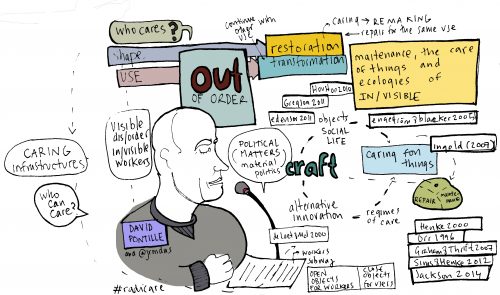 who cares?
shape
USE
OUT
OF ORDER
continue with
other
use
caring → REMAKING
repair for the same use
restoration
transformation
maitenance, the care
of things and
ecologies of
IN/VISIBLE
Gregson 2011
edensor 2011
objects
SOCIAL
LIFE
craft
caring for
things
Ingold (2007)
REPAIR
alternative
innovation
regimes
of care
Henke 2000
Orr 1996
Graham & Thrift 2007
Sims & Henke 2012
Jackson 2014
POLITICAL
MATTERS:
material
politics
Visible
dis/order
in/visible
workers
CARING
infrastructures
who
can
care?
DAVID
PONTILLE
workers
subway
OPEN
OBJECTS
FOR WORKERS
CLOSE
OBJECTS
for users
#radicare